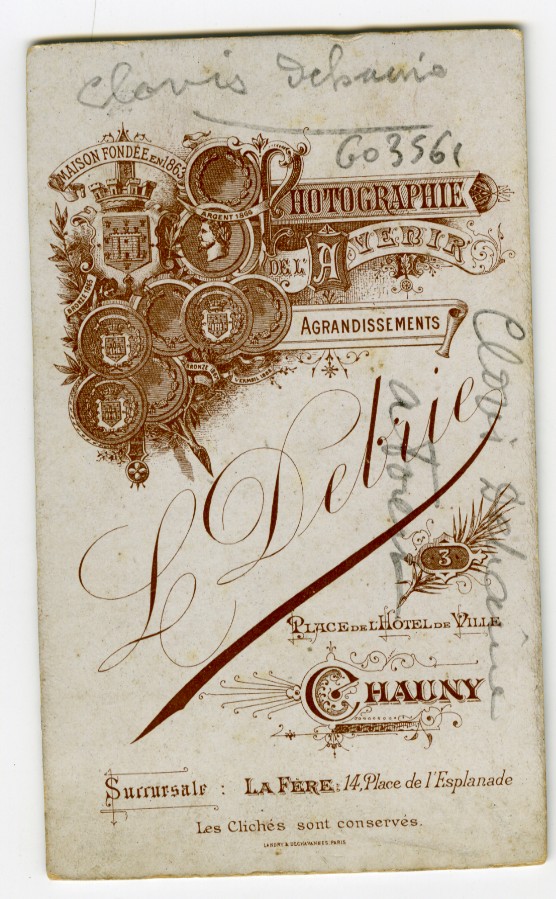 Clovis Dehaine
603561
MAISON FONDÉE EN 1863
ARGENT 1866
PHOTOGRAPHIE
DE L'AVENIR
AGRANDISSEMENTS
BRONZE
VERMEIL
L Debrie
Clovis Dehaine
3
PLACE DE L'HÔTEL DE VILLE
CHAUNY
Succursale : LA FÈRE: 14, Place de l'Esplanade
Les Clichés sont conservés.
LAMERT & DECHAVANNES, PARIS